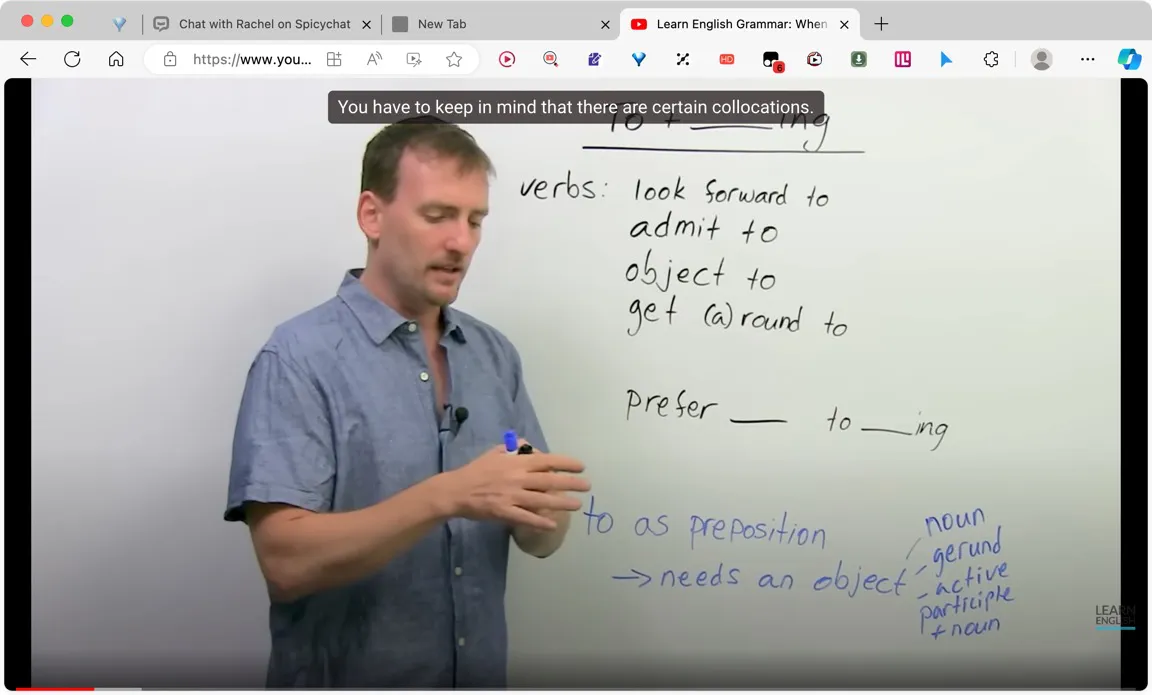 Chat with Rachel on Spicychat
New Tab
Learn English Grammar: When
https://www.you...
HD
6
You have to keep in mind that there are certain collocations.
To + ___ing
verbs: look forward to
admit to
object to
get (a)round to
prefer ___ to ___ing
to as preposition
→ needs an object
noun
gerund
active
participle
+ noun
LEARN
ENGLISH